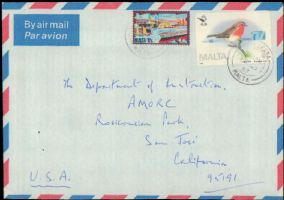 By air mail
Par avion
MALTA
MALTA
The Department of Instruction,
AMORC
Rosicrucian Park,
San José
California
95191
U.S.A.